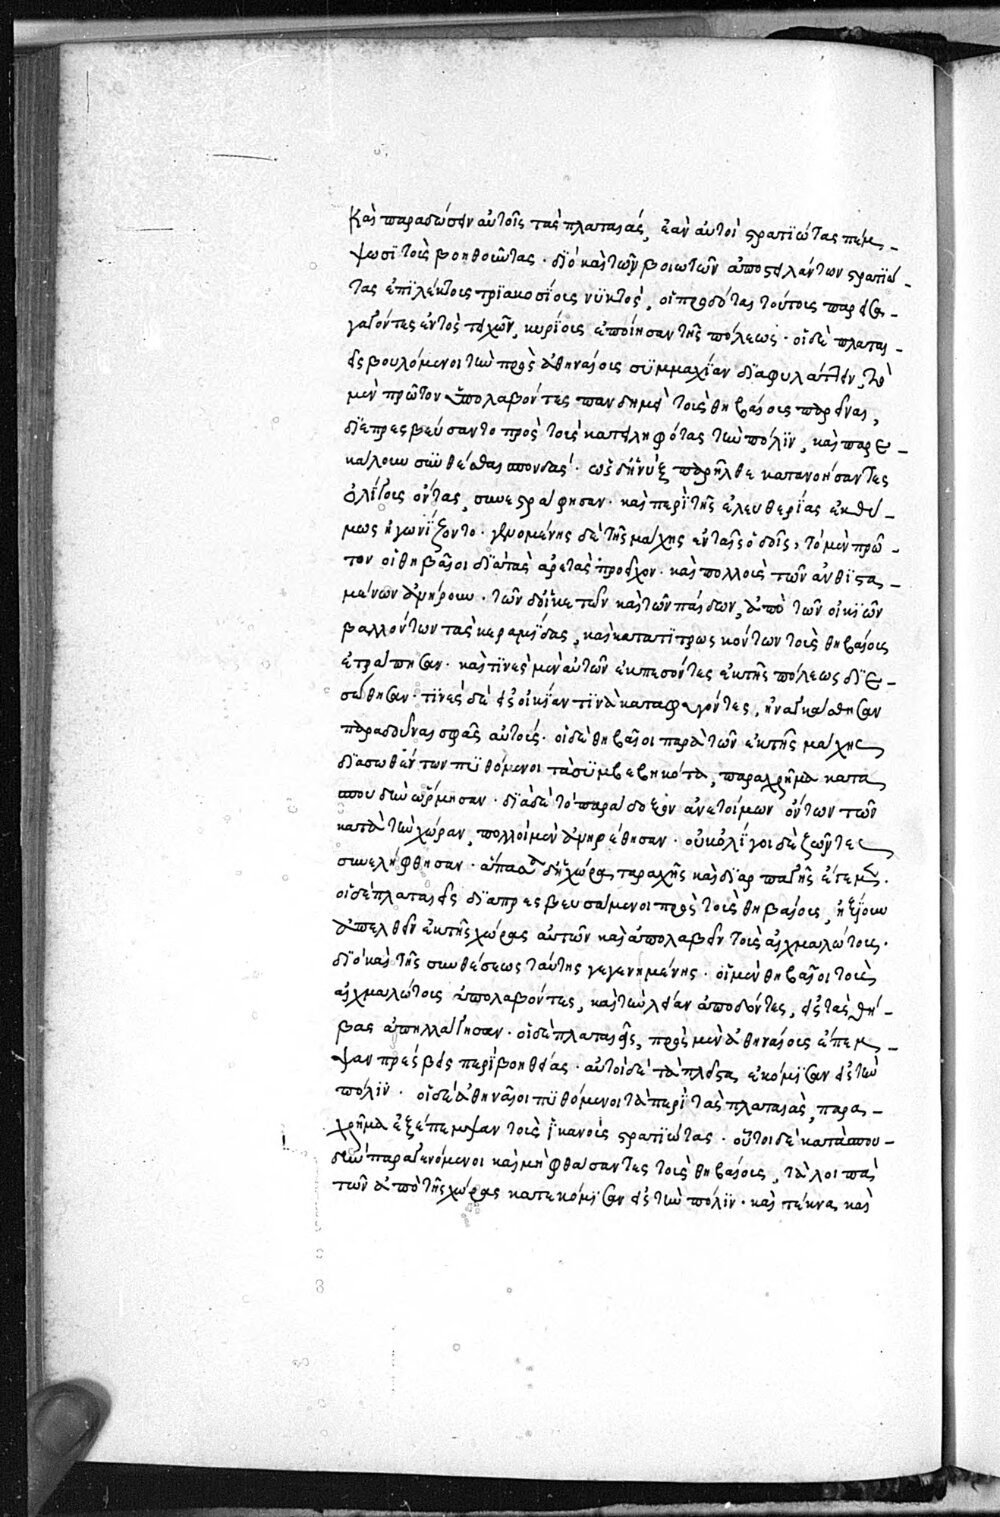 καὶ παραδώσειν αὐτοῖς τὰς πλαταιάς, ἐὰν αὐτοὶ στρατϊώτας πέμ_
ψωσϊ τοὺς βοηθοῦντας. διὸ καὶ τῶν βοιωτῶν ἀποστειλάντων στρατϊώ_
τας ἐπϊλέκτους τρϊακοσΐους νϋκτὸς, οἱ προδόται τούτους παρεισα_
γαγόντες ἐντὸς τειχῶν, κυρΐους ἐποίησαν τῆς πόλεως. οἱ δὲ πλαται_
εῖς βουλόμενοι τὴν πρὸς ἀθηναίους συμμαχΐαν διαφυλάττειν, τὸ
μὲν πρῶτον ὑπολαβόντες πανδημεὶ τοὺς θηβαίους παρεῖναι,
διεπρεσβεύσαντο πρὸς τοὺς κατειληφότας τὴν πόλϊν, καὶ παρε_
κάλουν συνθέσθαι σπονδάς. ὡς δὴ νὺξ παρῆλθε κατανοήσαντες
ὀλίγους ὄντας, συνεστράφησαν. καὶ περὶ τῆς ἐλευθερίας ἐκθύ_
μως ἠγωνΐζοντο. γενομένης δὲ τῆς μάχης ἐν ταῖς ὁδοῖς, τὸ μὲν πρῶ_
τον οἱ θηβαῖοι διὰ τὰς ἀρετὰς προεῖχον. καὶ πολλοὺς τῶν ἀνθϊστα_
μένων ἀνήρουν. τῶν δὲ οἰκετῶν καὶ τῶν παίδων, ἀπὸ τῶν οἰκιῶν
βαλλόντων τὰς κεραμΐδας, καὶ κατατϊτρωσκόντων τοὺς θηβαίους
ἐτράπησαν. καὶ τϊνὲς μὲν αὐτῶν ἐκπεσόντες ἐκ τῆς πόλεως διε_
σώθησαν. τϊνὲς δὲ εἰς οἰκΐαν τϊνὰ καταφυγόντες, ἠναγκάσθησαν
παραδοῦναι σφᾶς αὐτούς. οἱ δὲ θηβαῖοι παρὰ τῶν ἐκ τῆς μάχης
διασωθέντων πυθόμενοι τὰ συμβεβηκότα, παραχρῆμα κατὰ
σπουδὴν ὥρμησαν. διὰ δὲ τὸ παράδοξον ἀνετοίμων ὄντων τῶν
κατὰ τὴν χώραν, πολλοὶ μὲν ἀνηρέθησαν. οὐκ ὀλΐγοι δὲ ζῶντες
συνελήφθησαν. ἅπασα δὲ ἡ χώρα ταραχῆς καὶ διαρπαγῆς ἔγεμεν.
οἱ δὲ πλαταιεῖς διαπρεσβευσάμενοι πρὸς τοὺς θηβαίους, ἠξΐουν
ἀπελθεῖν ἐκ τῆς χώρας αὐτῶν καὶ ἀπολαβεῖν τοὺς αἰχμαλώτους.
διὸ καὶ τῆς συνθέσεως ταύτης γεγενημένης. οἱ μὲν θηβαῖοι τοὺς
αἰχμαλώτους ἀπολαβόντες, καὶ τὴν λείαν ἀποδόντες, εἰς τὰς θή_
βας ἀπηλλάγησαν. οἱ δὲ πλαταιεῖς, πρὸς μὲν ἀθηναίους ἔπεμ_
ψαν πρέσβεις περὶ βοηθείας. αὐτοὶ δὲ τὰ πλεῖστα ἐκόμϊσαν εἰς τὴν
πόλϊν. οἱ δὲ ἀθηναῖοι πυθόμενοι τὰ περὶ τὰς πλαταιὰς, παρα_
χρῆμα ἐξέπεμψαν τοὺς ἱκανοὺς στρατϊώτας. οὗτοι δὲ κατὰ σπου_
δὴν παραγενόμενοι καὶ μὴ φθάσαντες τοὺς θηβαίους, τὰ λοιπὰ
τῶν ἀπὸ τῆς χώρας κατεκόμϊσαν εἰς τὴν πόλϊν. καὶ τέκνα καὶ